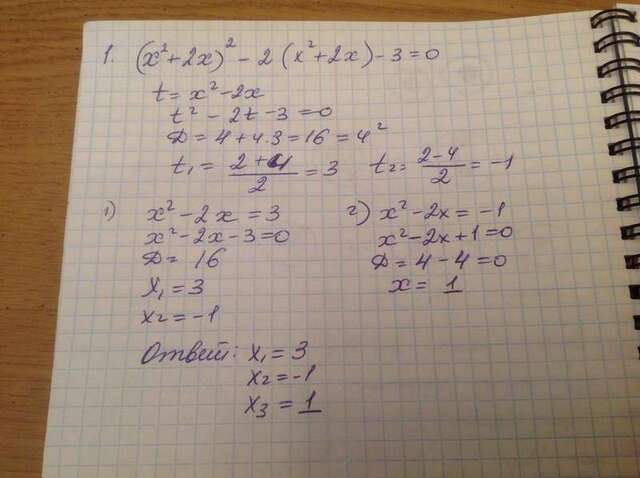 1. (x² + 2x)² - 2 (x² + 2x) - 3 = 0
t = x² - 2x
t² - 2t - 3 = 0
Д = 4 + 4·3 = 16 = 4²
t₁ = (2+4)/2 = 3 t₂ = (2-4)/2 = -1
1) x² - 2x = 3
x² - 2x - 3 = 0
Д = 16
x₁ = 3
x₂ = -1
2) x² - 2x = -1
x² - 2x + 1 = 0
Д = 4 - 4 = 0
x = 1
Ответ: x₁ = 3
x₂ = -1
x₃ = 1